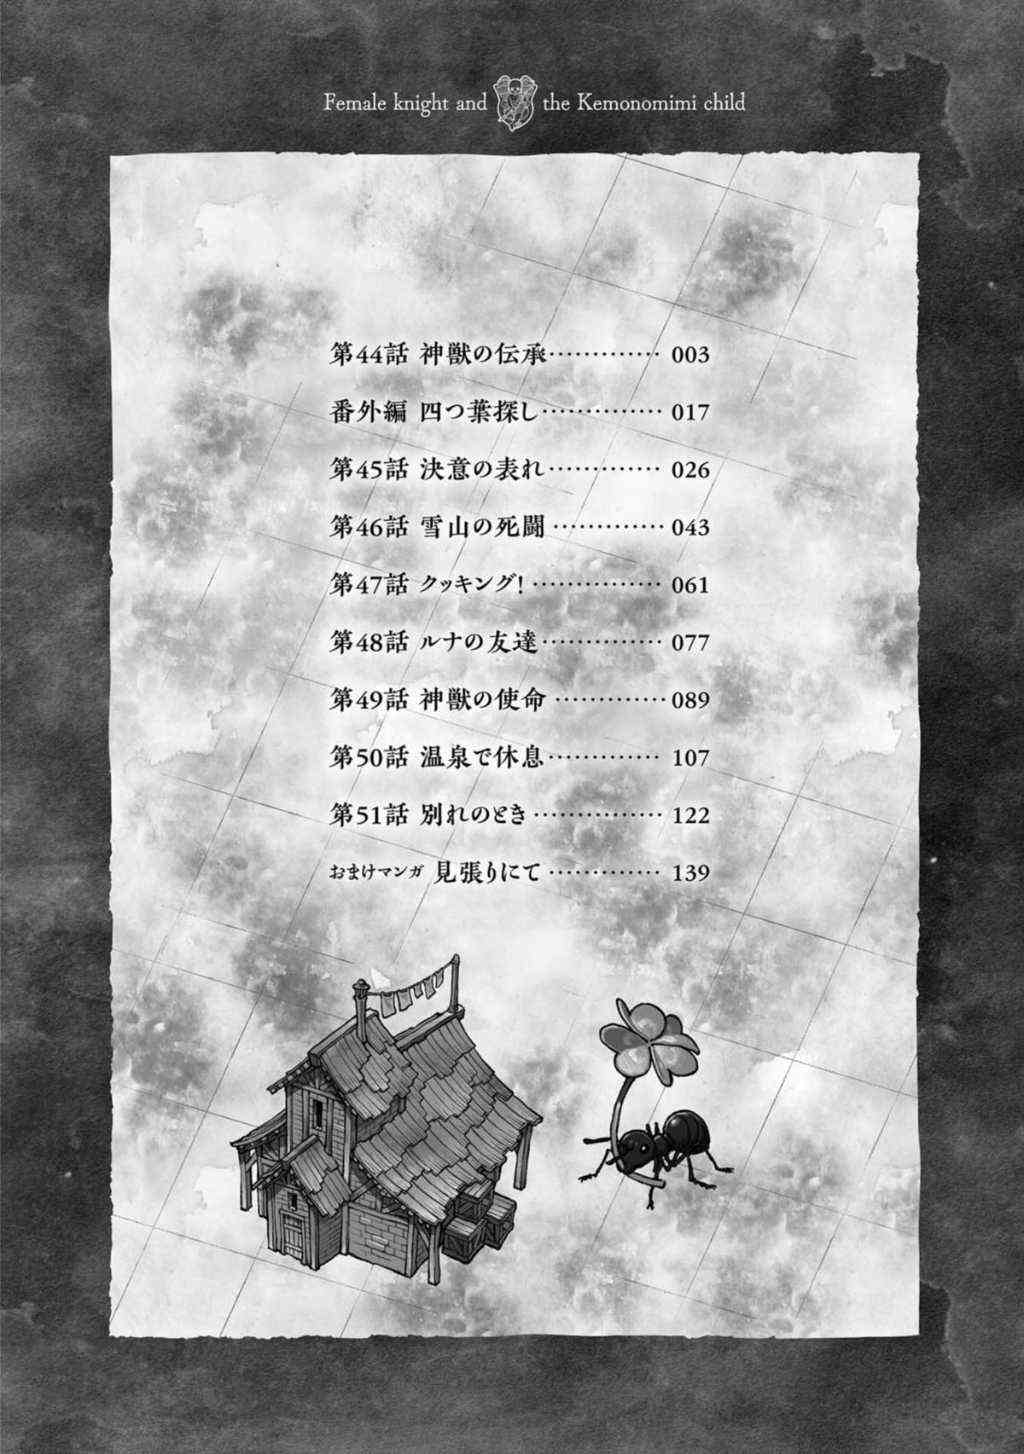 Female knight and the Kemonomimi child
第44話 神獣の伝承············· 003
番外編 四つ葉探し·············· 017
第45話 決意の表れ············· 026
第46話 雪山の死闘············· 043
第47話 クッキング!··············· 061
第48話 ルナの友達·············· 077
第49話 神獣の使命·············089
第50話 温泉で休息············· 107
第51話 別れのとき··············· 122
おまけマンガ 見張りにて············· 139